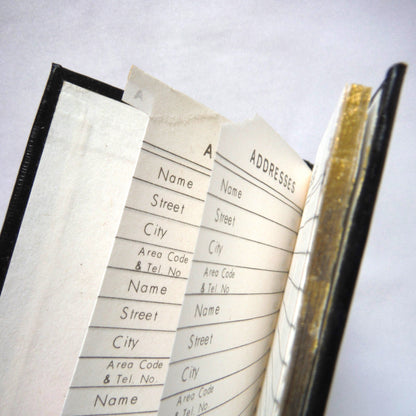 A
A
Name
Street
City
Area Code
& Tel. No.
Name
Street
City
Area Code
& Tel. No.
Name
ADDRESSES
Name
Street
City
Area Code
& Tel. No.
Name
Street
City
Area Code
& Tel. No.